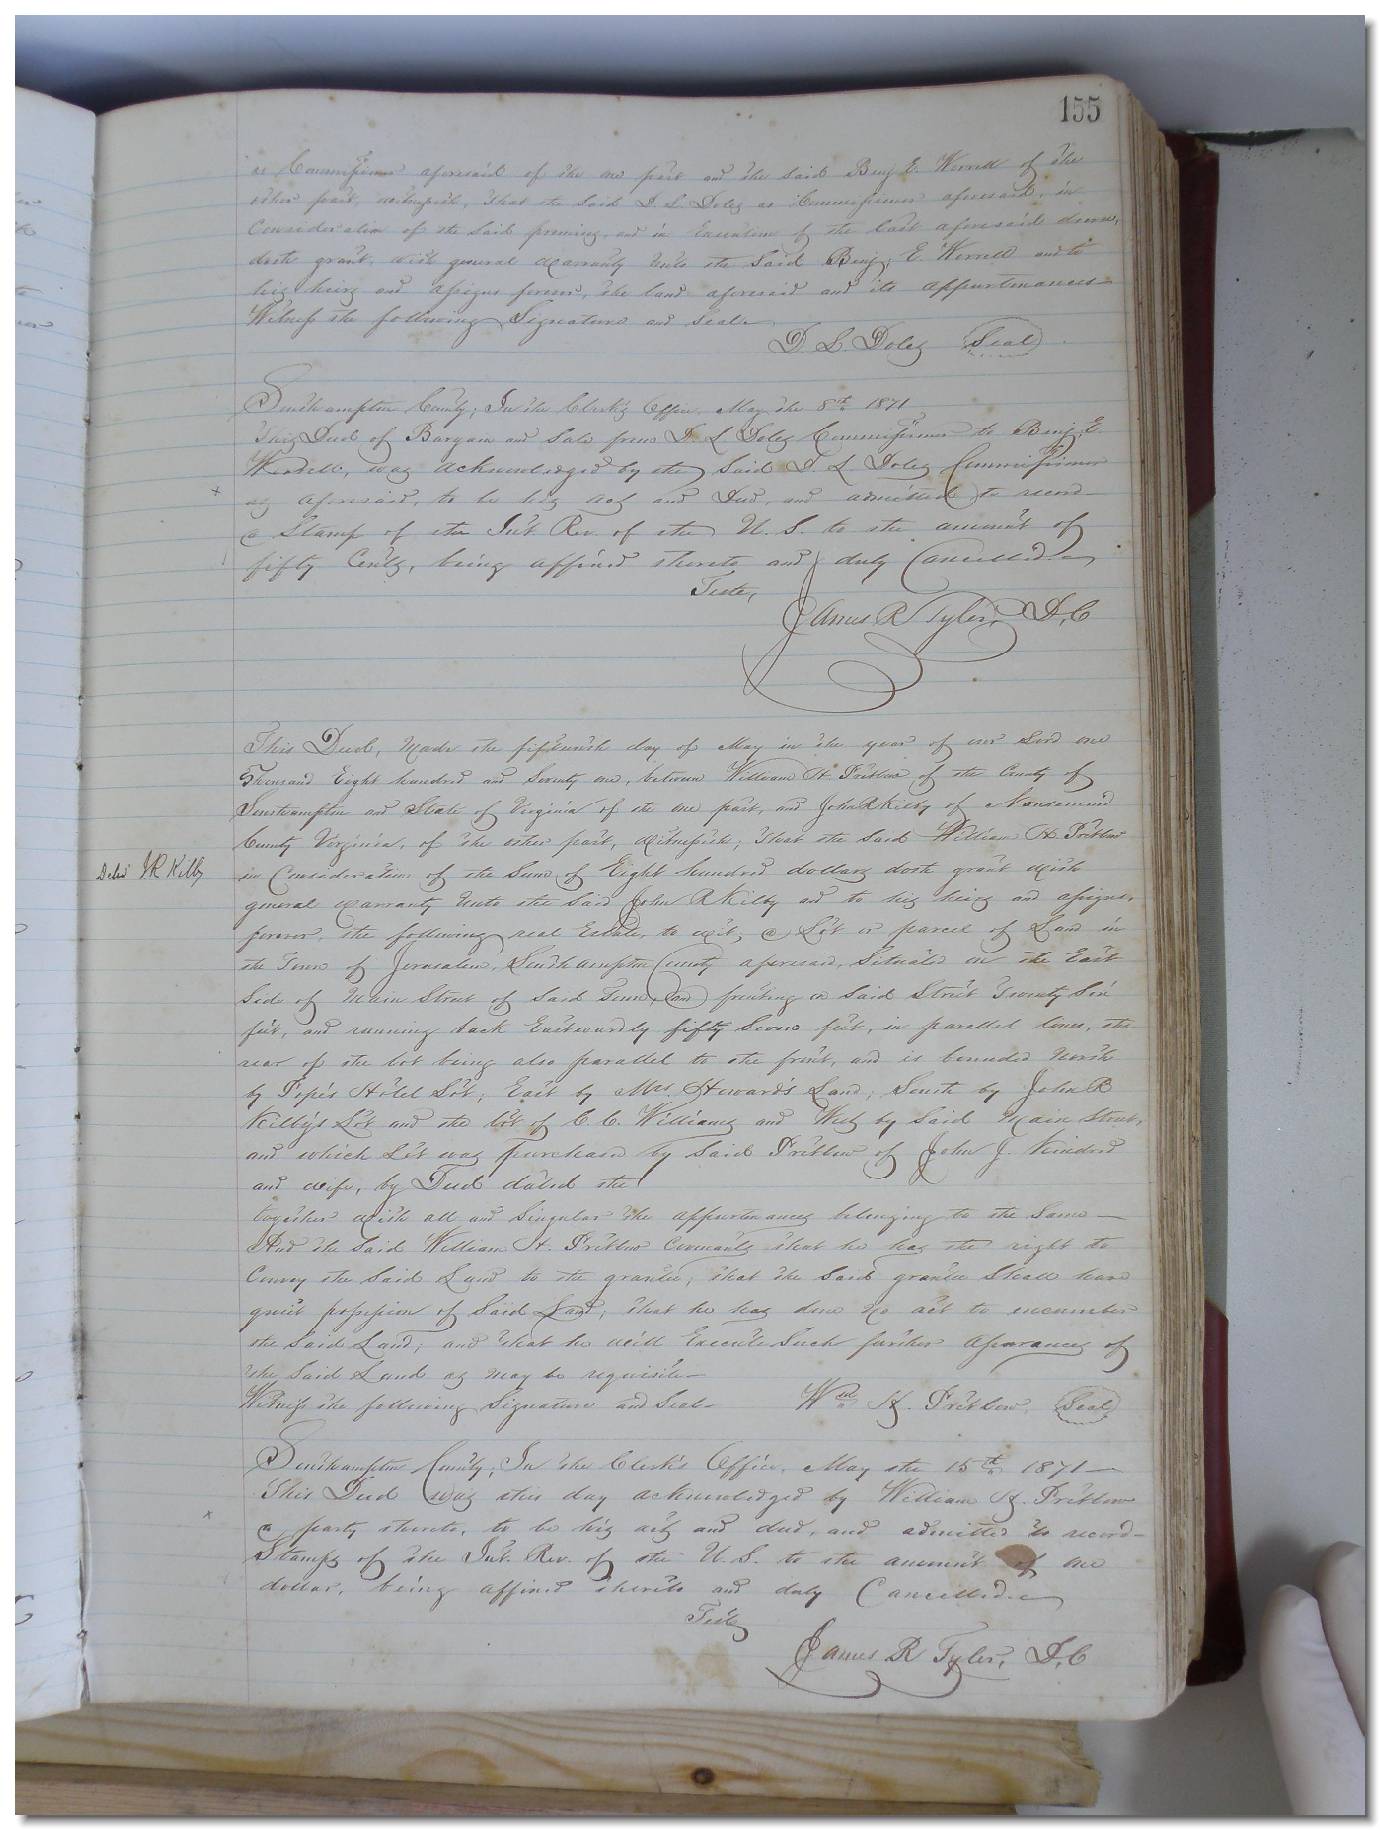 155
as Commissioner aforesaid of the one part and the said Benj E. Worrell of the
other part, witnesseth, that the said D. L. Doles as Commissioner aforesaid, in
Consideration of the said premises, and in Execution of the last aforesaid decree,
doth grant, with general warranty unto the said Benj. E Worrell and to
his heirs and assigns forever, the land aforesaid and its appurtenances
Witness the following Signature and seal
D L. Doles Seal
Southampton County; In the Clerk's Office. May the 8th 1871
This Deed of Bargain and Sale from D L Doles Commissioner to Benj. E
Worrell, was acknowledged by the said D. L Doles Commissioner
x as aforesaid, to be his act and Deed, and admitted to record
a Stamp of the Int. Rev. of the U. S. to the amount of
fifty Cents, being affixed thereto and duly Cancelled
Teste,
James R Tyler, D,C
This Deed, Made the fifteenth day of May in the year of our Lord one
Thousand Eight hundred and Seventy one, between William H. Pretlow of the County of
Southampton and State of Virginia of the one part, and John R Kilby of Nansemond
County Virginia, of the other part, witnesseth; that the said William H Pretlow
Deld J R Kilby
in Consideration of the Sum of Eight hundred dollars doth grant with
general warranty unto the said John R Kilby and to his heirs and assigns,
forever, the following real Estate, to wit, a Lot or parcel of Land in
the Town of Jerusalem, Southampton County aforesaid, Situated on the East
Side of Main Street of Said Town, and fronting on Said Street Twenty Six
feet, and running back Eastwardly fifty Seven feet, in parallel lines, the
rear of the lot being also parallel to the front, and is bounded North
by Pope's Hotel Lot; East by Mrs. Howard's Land; South by John R
Kilby's Lot and the lot of C. C. Williams and West by Said Main Street,
and which Lot was purchased by Said Pretlow of John J. Kindred
and wife, by Deed dated the
together with all and Singular the appurtenances belonging to the Same
And the Said William H. Pretlow Covenants that he has the right to
Convey the Said Land to the grantee; that the Said grantee Shall have
quiet possession of Said Land; that he has done no act to encumber
the Said Land; and that he will Execute Such further assurances of
the Said Land as may be requisite
Witness the following Signature and Seal
Wm H. Pretlow Seal
Southampton County; In the Clerk's Office. May the 15th 1871
This Deed was this day acknowledged by William H. Pretlow
x a party thereto, to be his act and deed, and admitted to record
Stamps of the Int. Rev. of the U. S. to the amount of one
dollar, being affixed thereto and duly Cancelled
Teste
James R Tyler, D,C